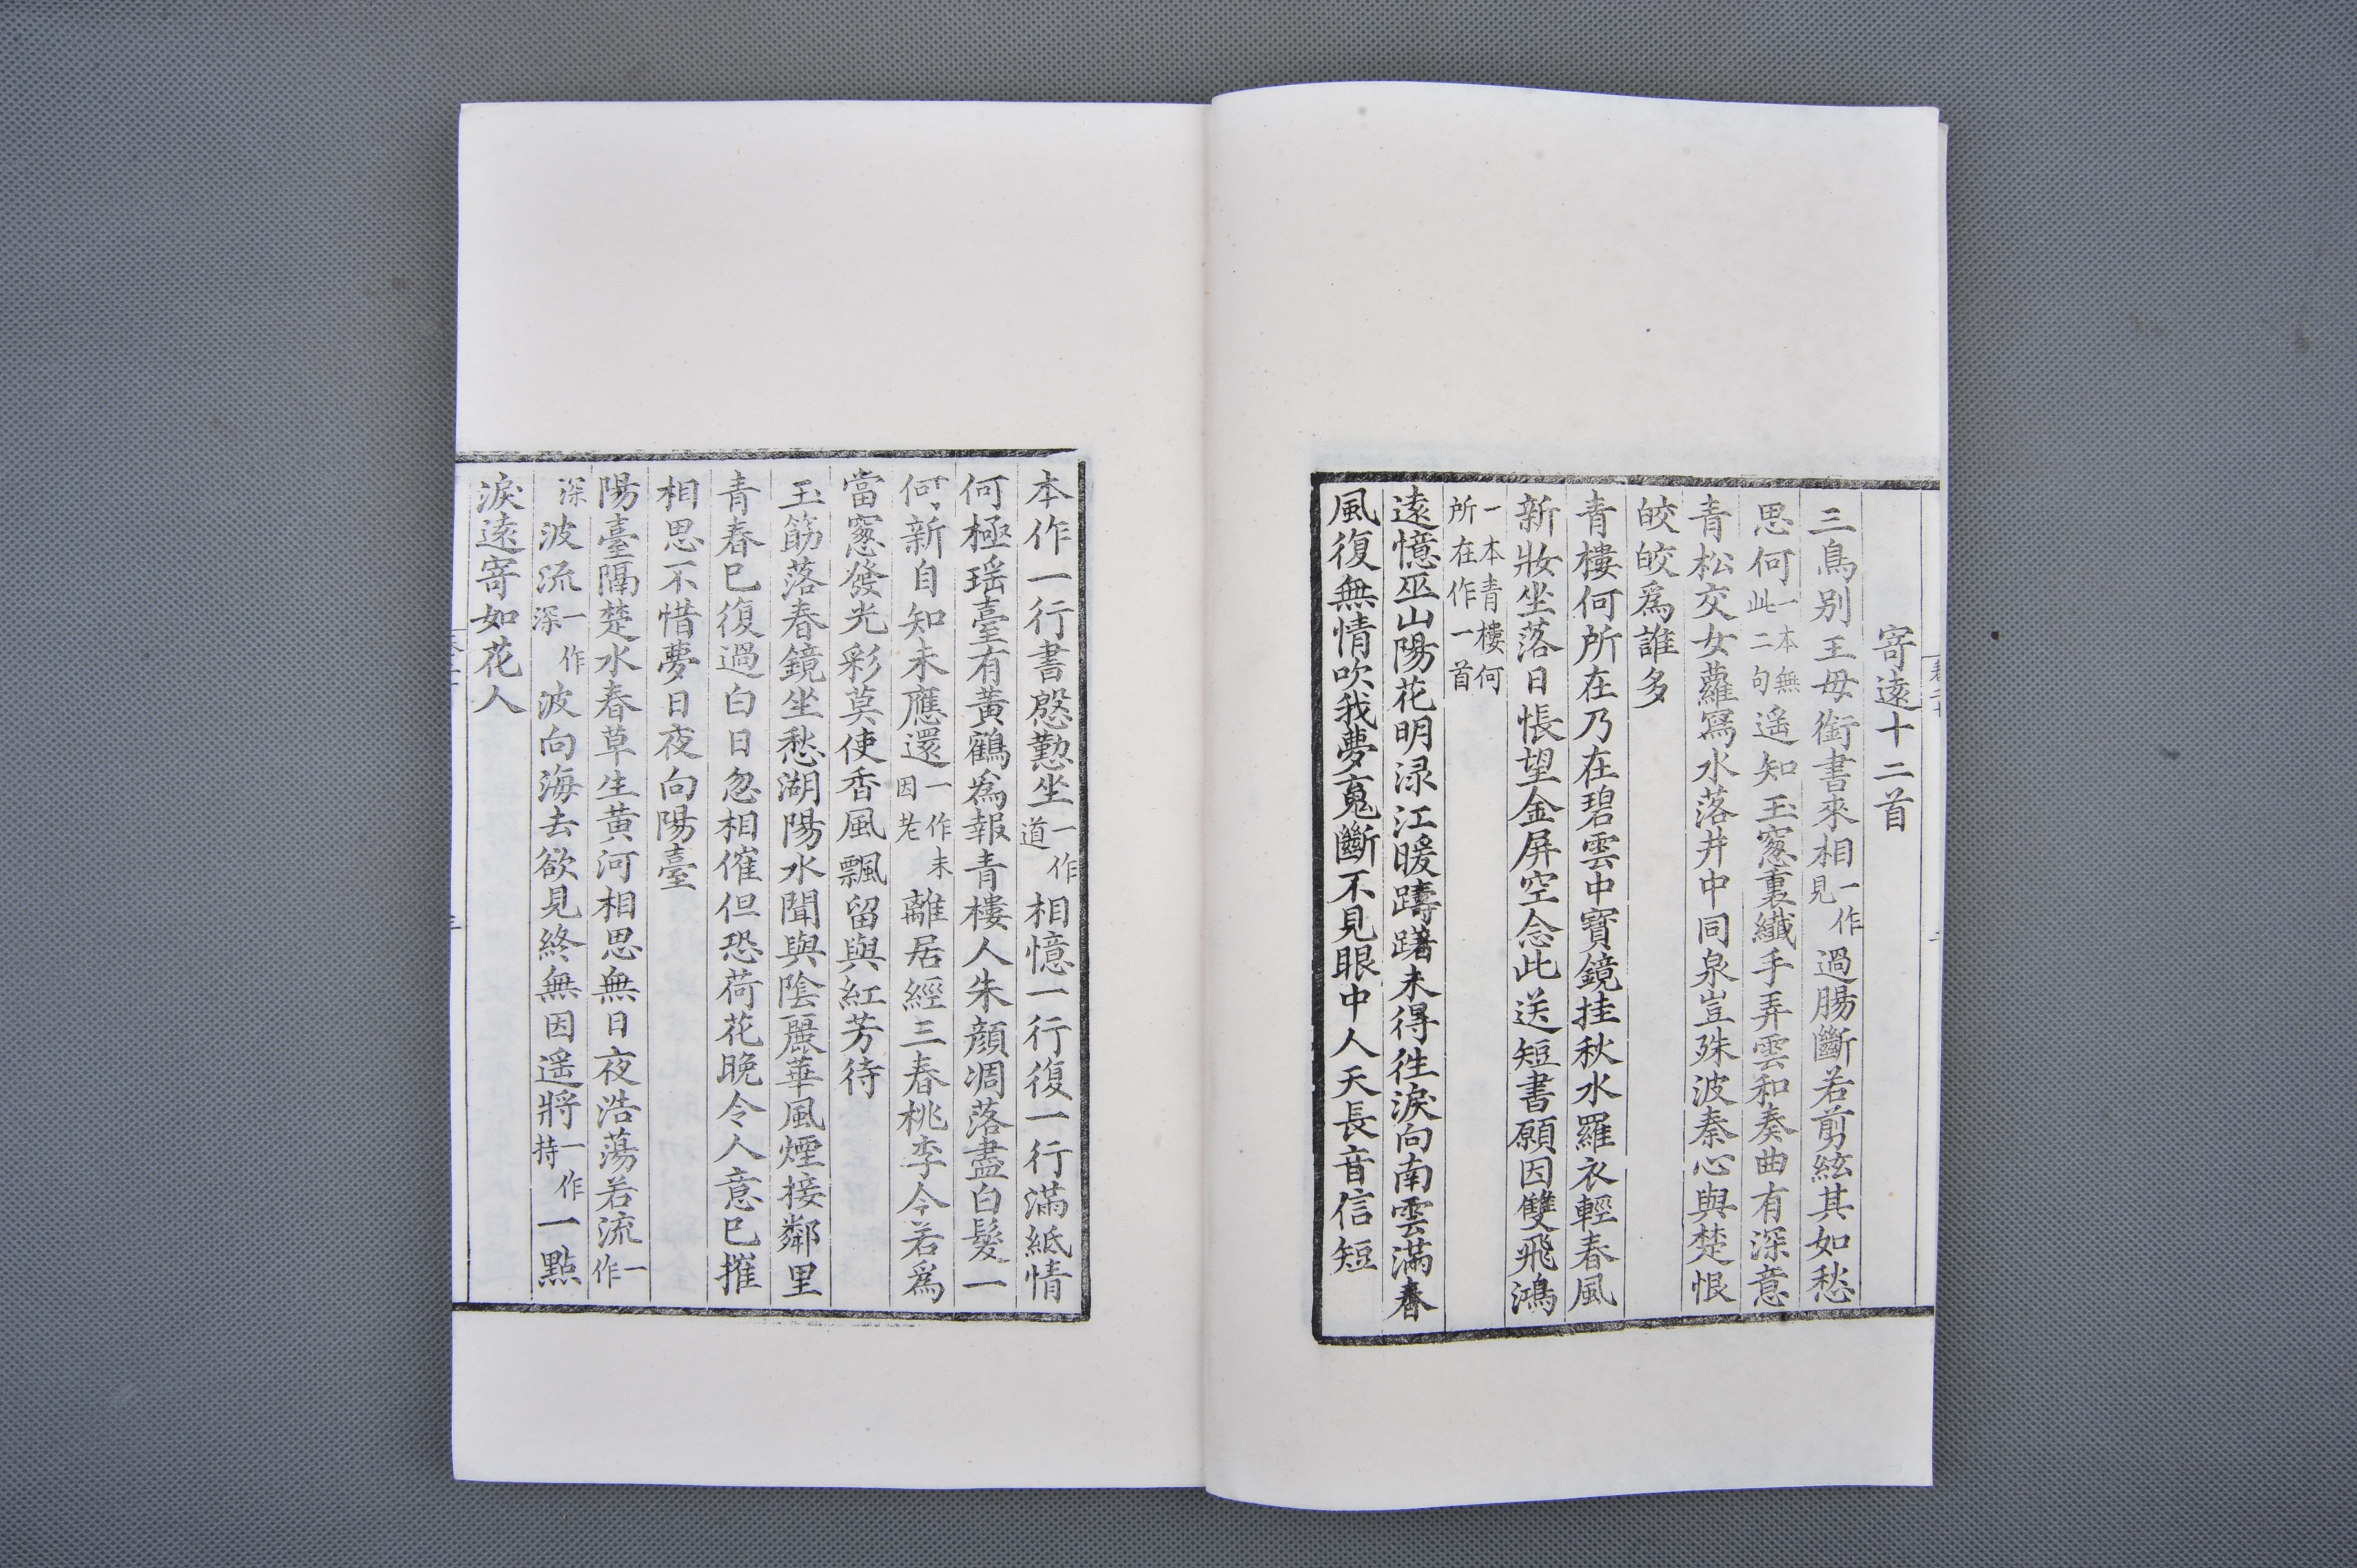 寄遠十二首
三鳥別王母銜書來相一作見過腸斷若剪絃其如愁
思何一本無此二句遥知玉窓裏纖手弄雲和奏曲有深意
青松交女蘿寫水落井中同泉豈殊波秦心與楚恨
皎皎爲誰多
青樓何所在乃在碧雲中寶鏡挂秋水羅衣輕春風
新妝坐落日悵望金屏空念此送短書願因雙飛鴻
一本青樓何所在作一首
遠憶巫山陽花明淥江暖躊躇未得徃淚向南雲滿春
風復無情吹我夢䰟斷不見眼中人天長音信短
本作一行書慇懃坐一作道相憶一行復一行滿紙情
何極瑶臺有黃鶴爲報青樓人朱顔凋落盡白髮一
何新自知未應還一作未因老離居經三春桃李今若爲
當窓發光彩莫使香風飄留與紅芳待
玉筯落春鏡坐愁湖陽水聞與陰麗華風煙接鄰里
青春已復過白日忽相催但恐荷花晚令人意已摧
相思不惜夢日夜向陽臺
陽臺隔楚水春草生黃河相思無日夜浩蕩若流一作
深波流一作深波向海去欲見終無因遥將一作持一點
淚遠寄如花人